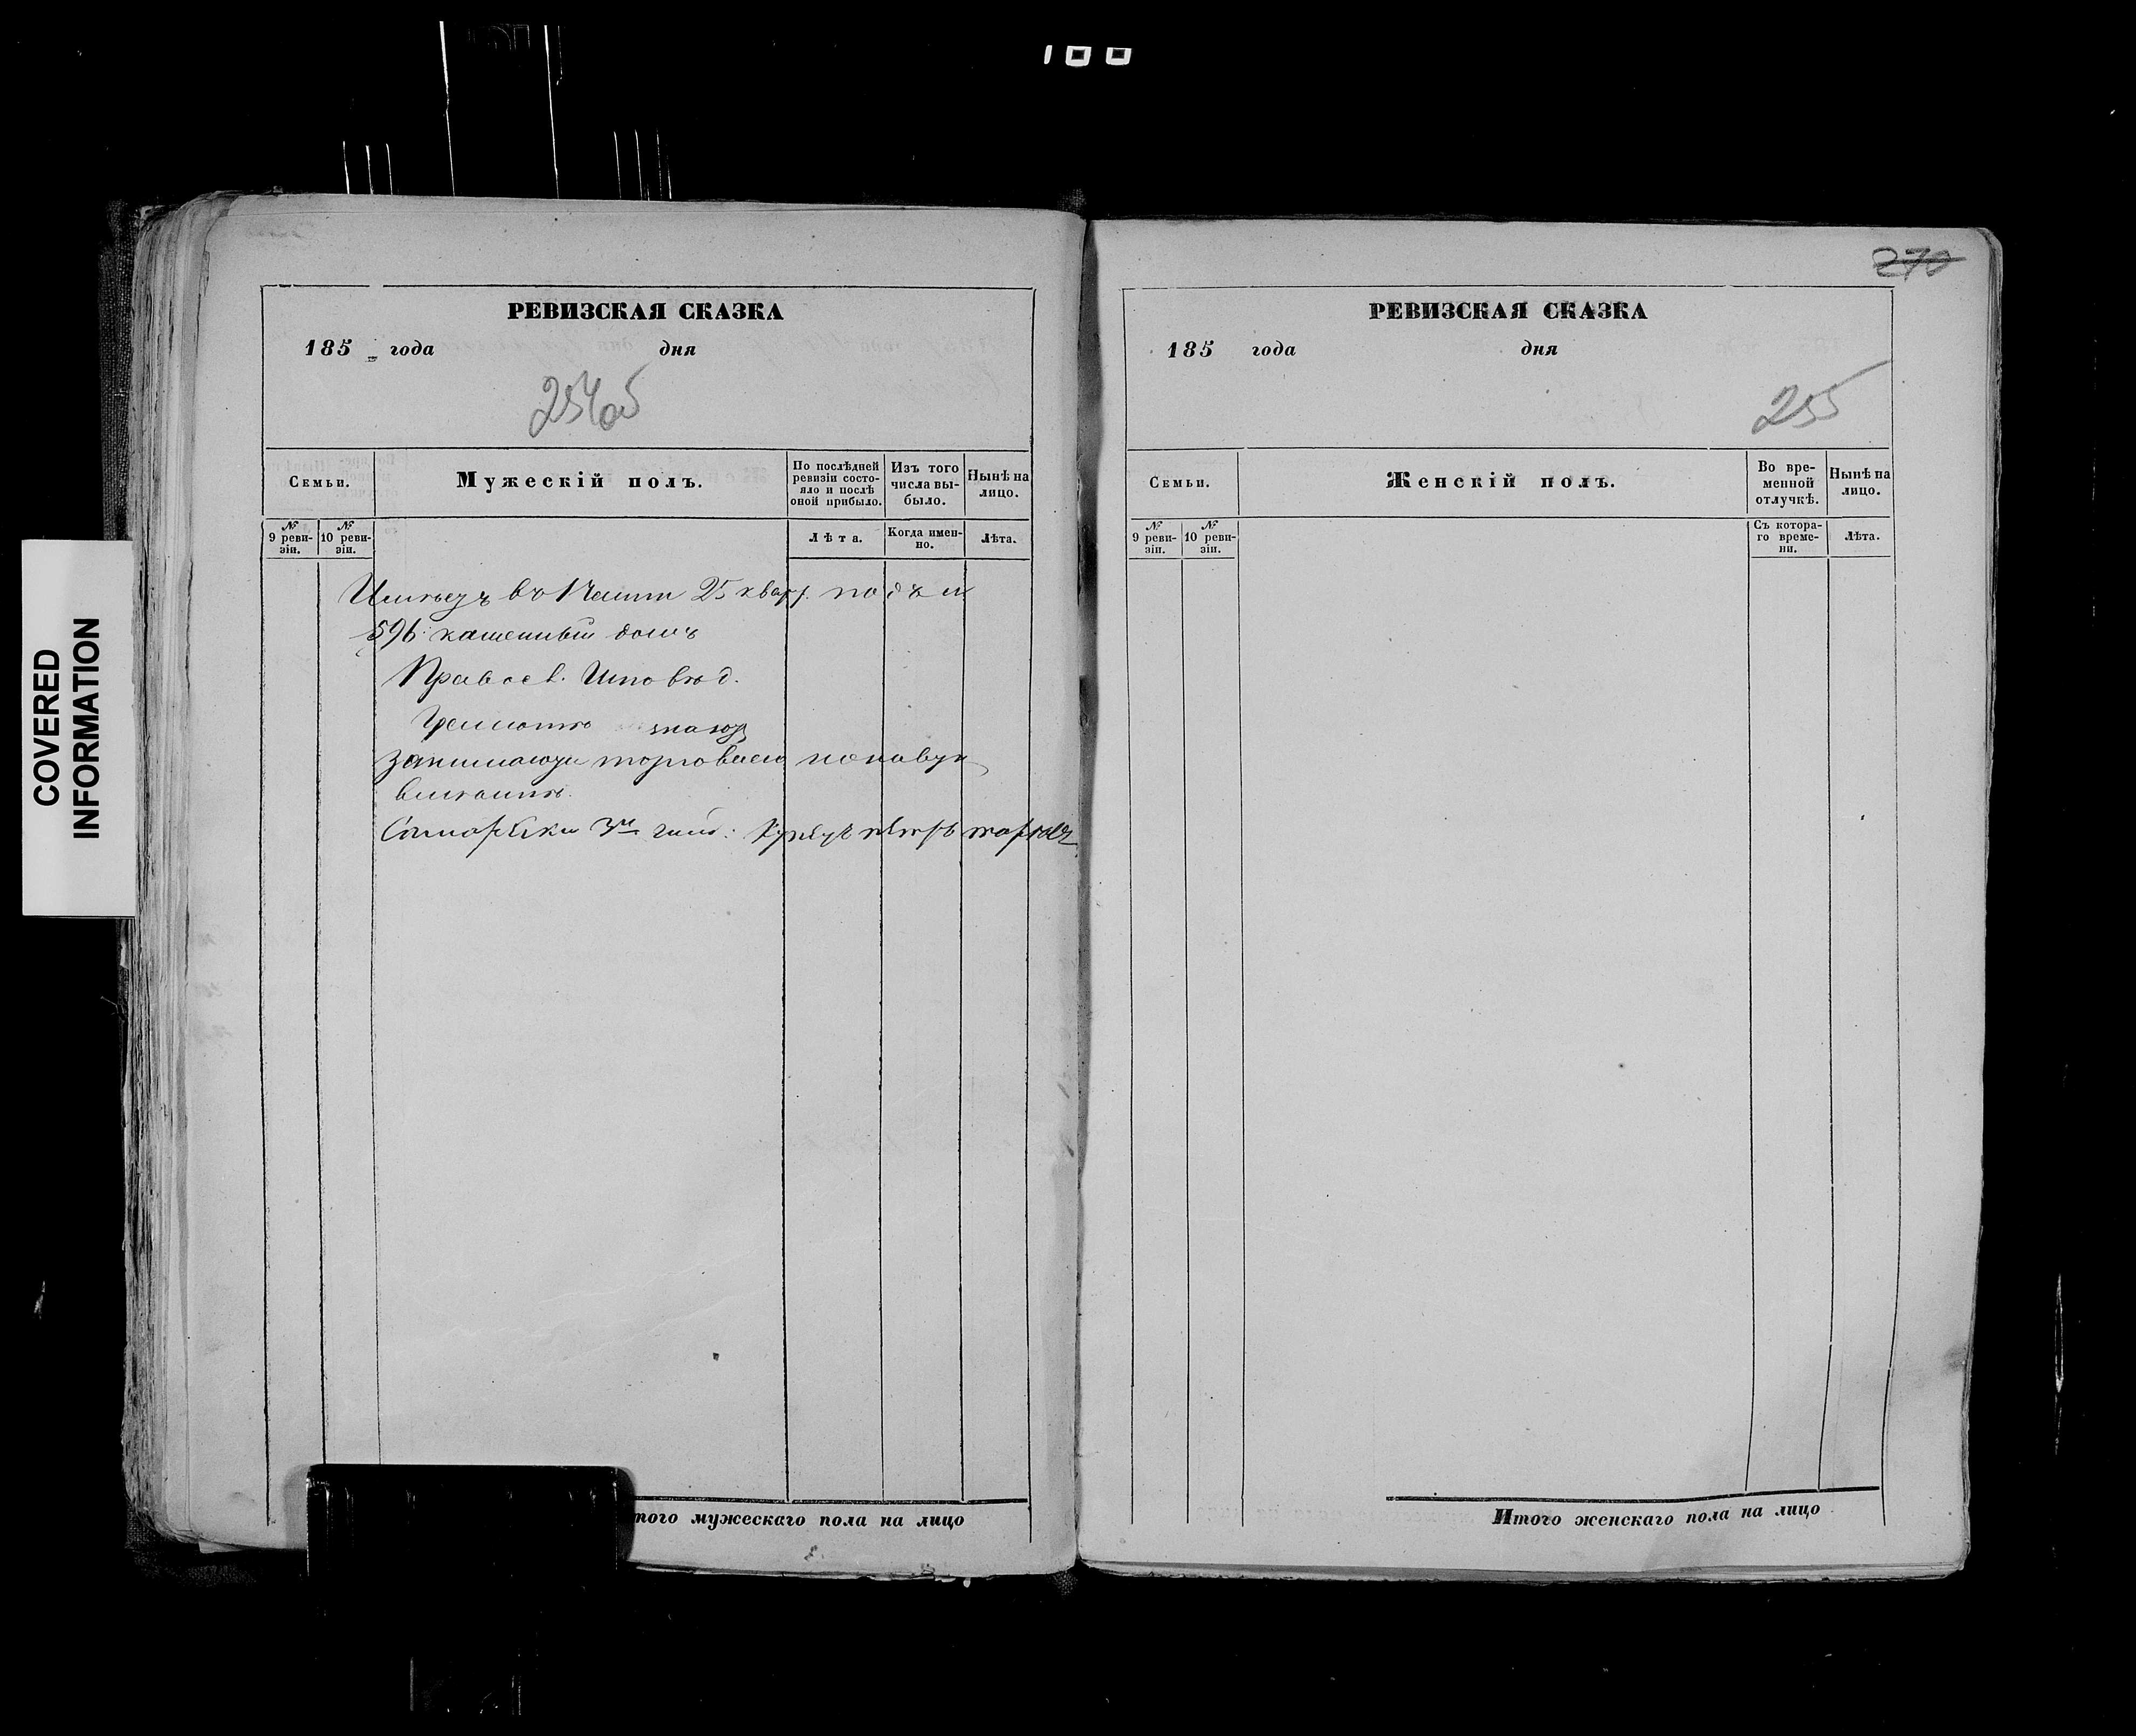 100
COVERED
INFORMATION
РЕВИЗСКАЯ СКАЗКА
185 года дня
254об
Семьи.
Мужескій полъ.
По послѣдней ревизіи состояло и послѣ оной прибыло.
Изъ того числа выбыло.
Нынѣ на лицо.
№ 9 ревизіи.
№ 10 ревизіи.
Лѣта.
Когда именно.
Лѣта.
Имѣетъ въ 1 части 25 кварт. подъ №
596: каменный домъ
Правосл. Исповѣд.
Грамотѣ знают
занимаются торговлею
3й гильд: Купецъ петръ
того мужескаго пола на лицо
270
РЕВИЗСКАЯ СКАЗКА
185 года дня
255
Семьи.
Женскій полъ.
Во временной отлучкѣ.
Нынѣ на лицо.
№ 9 ревизіи.
№ 10 ревизіи.
Съ котораго времени.
Лѣта.
Итого женскаго пола на лицо